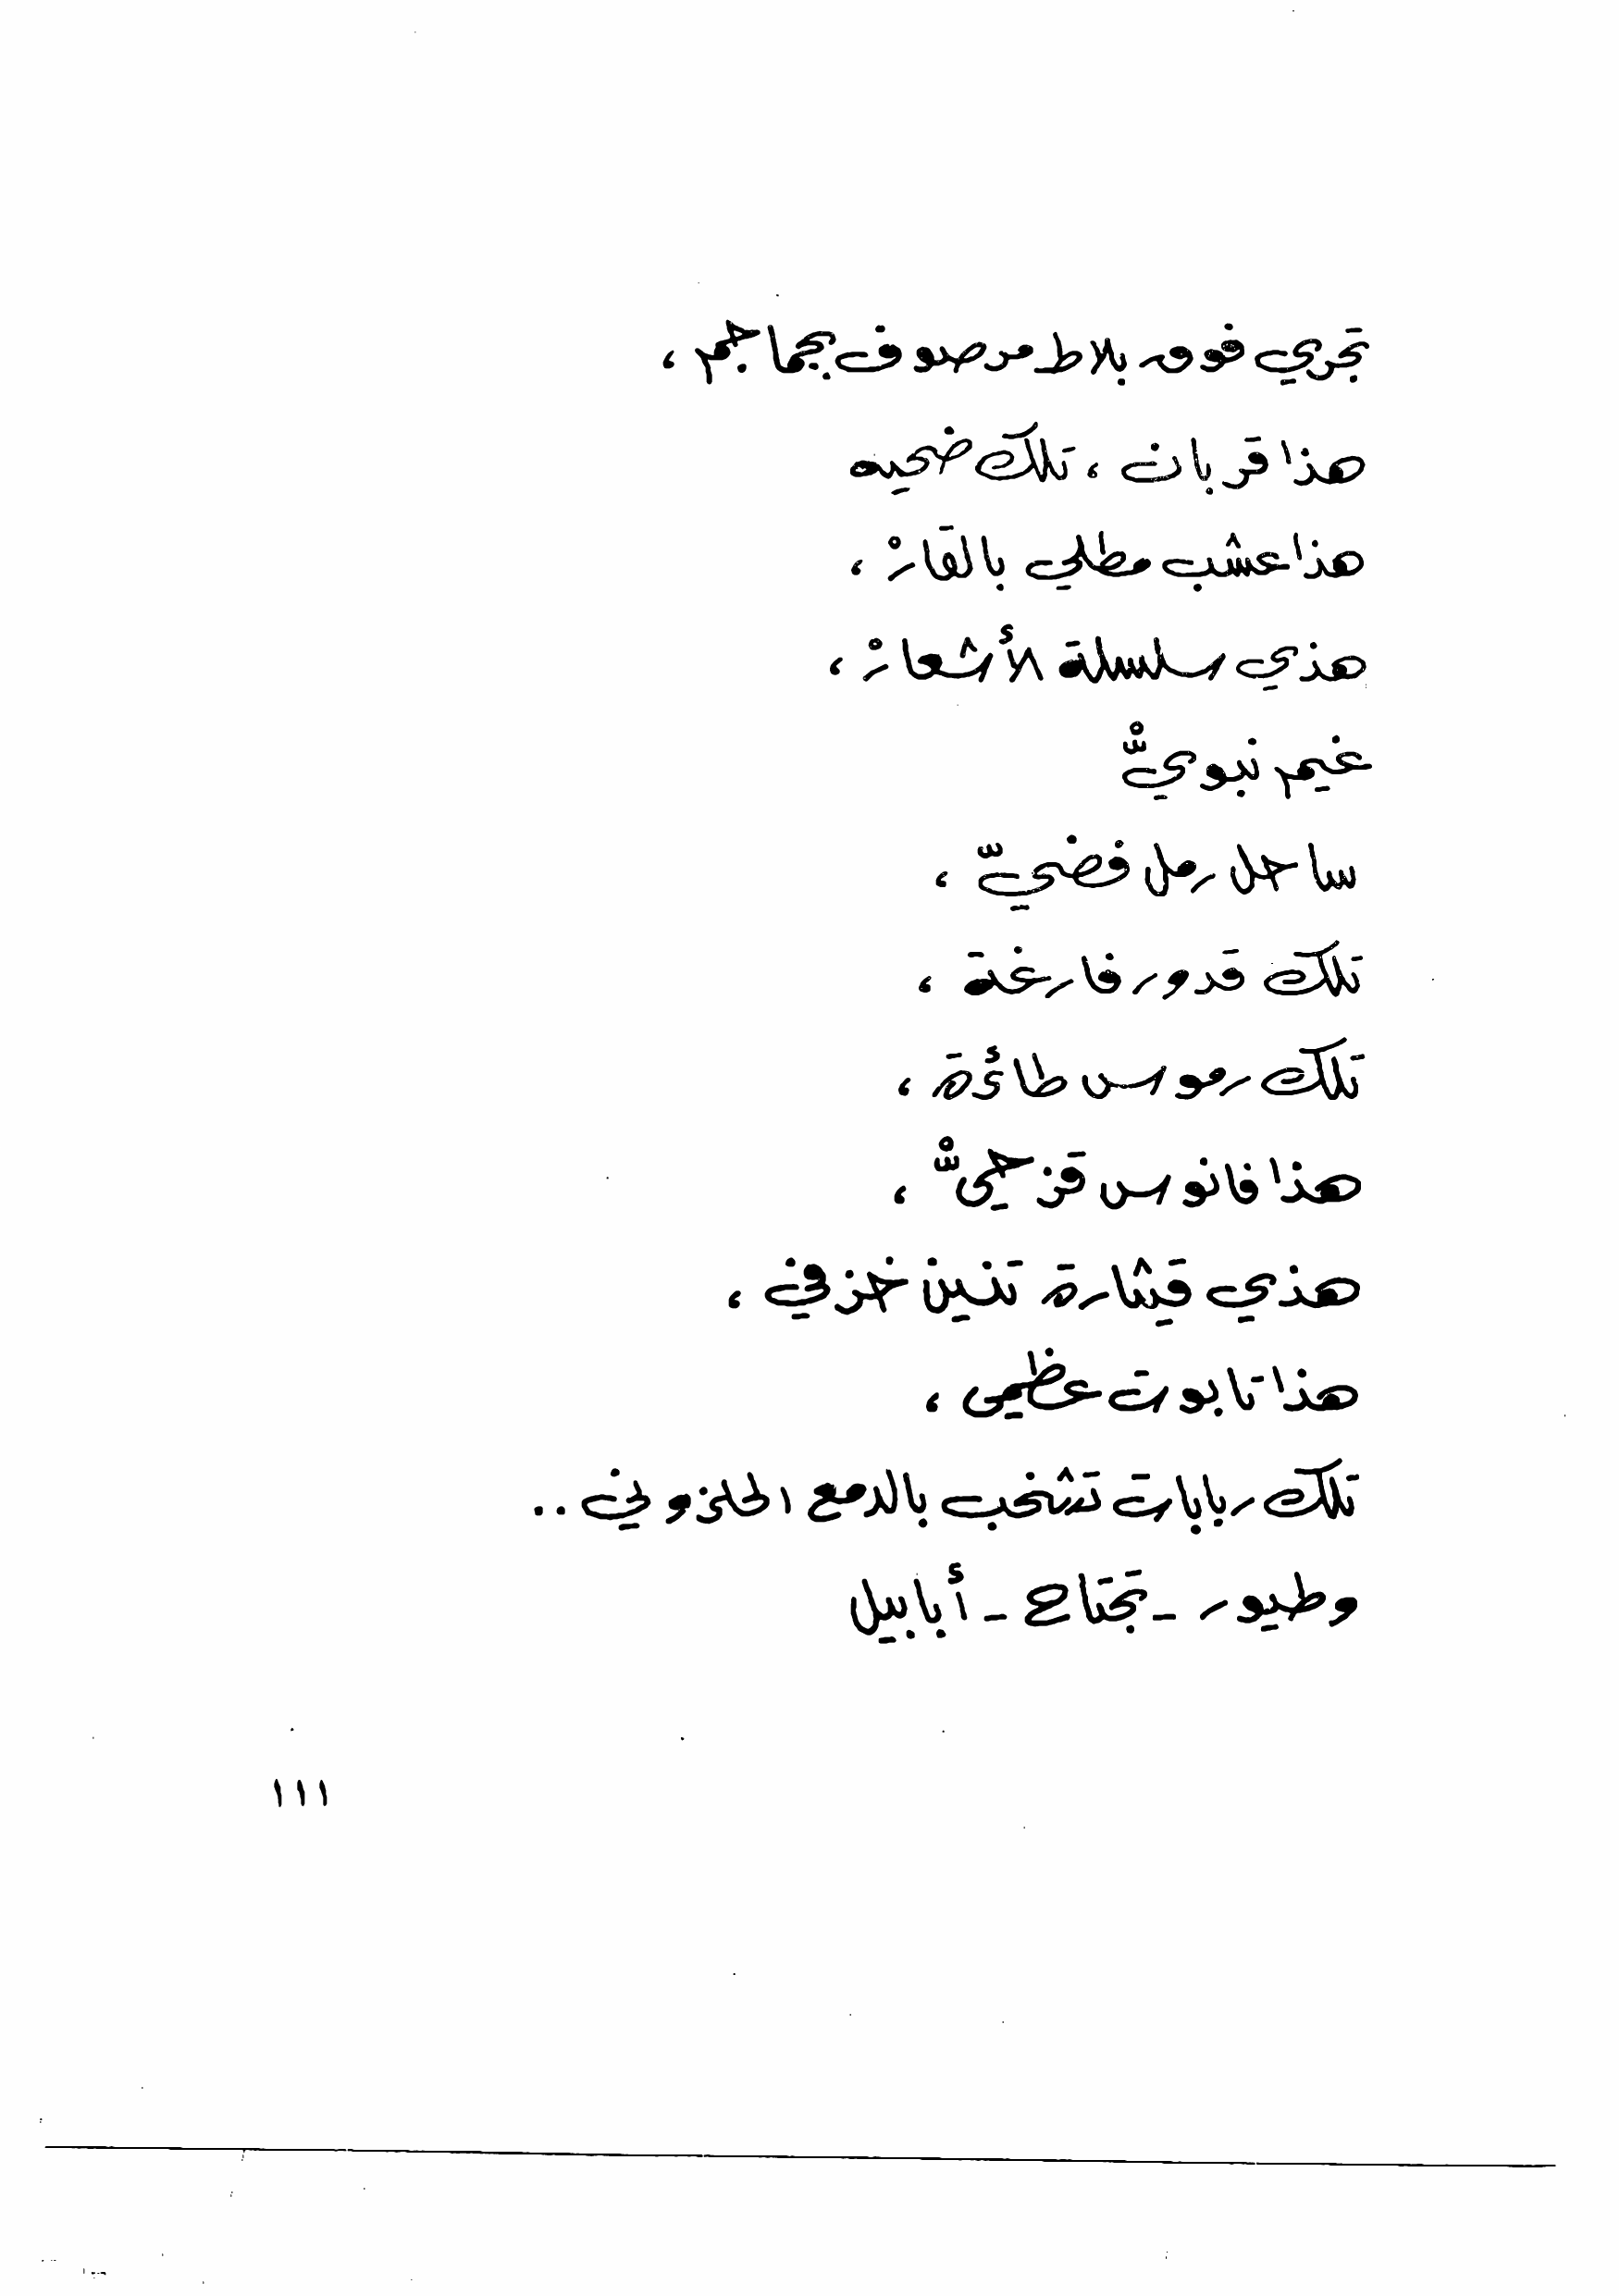 تجري فوق بلاط مرصوف بجماجم ،
هذا قربان ، تلك ضحيه
هذا عشب مطلي بالقارْ ،
هذي سلسلة الأشعارْ ،
غيم نبويّْ
ساحل رمل فضيّ ،
تلك قدور فارغة ،
تلك رموس طائرة ،
هذا فانوس قزحيّْ ،
هذي قيثارة تنين خزفي ،
هذا تابوت عظمي ،
تلك ربابات تشخب بالدمع الحلزوني ..
وطيور - تجتاح - أبابيل
١١١